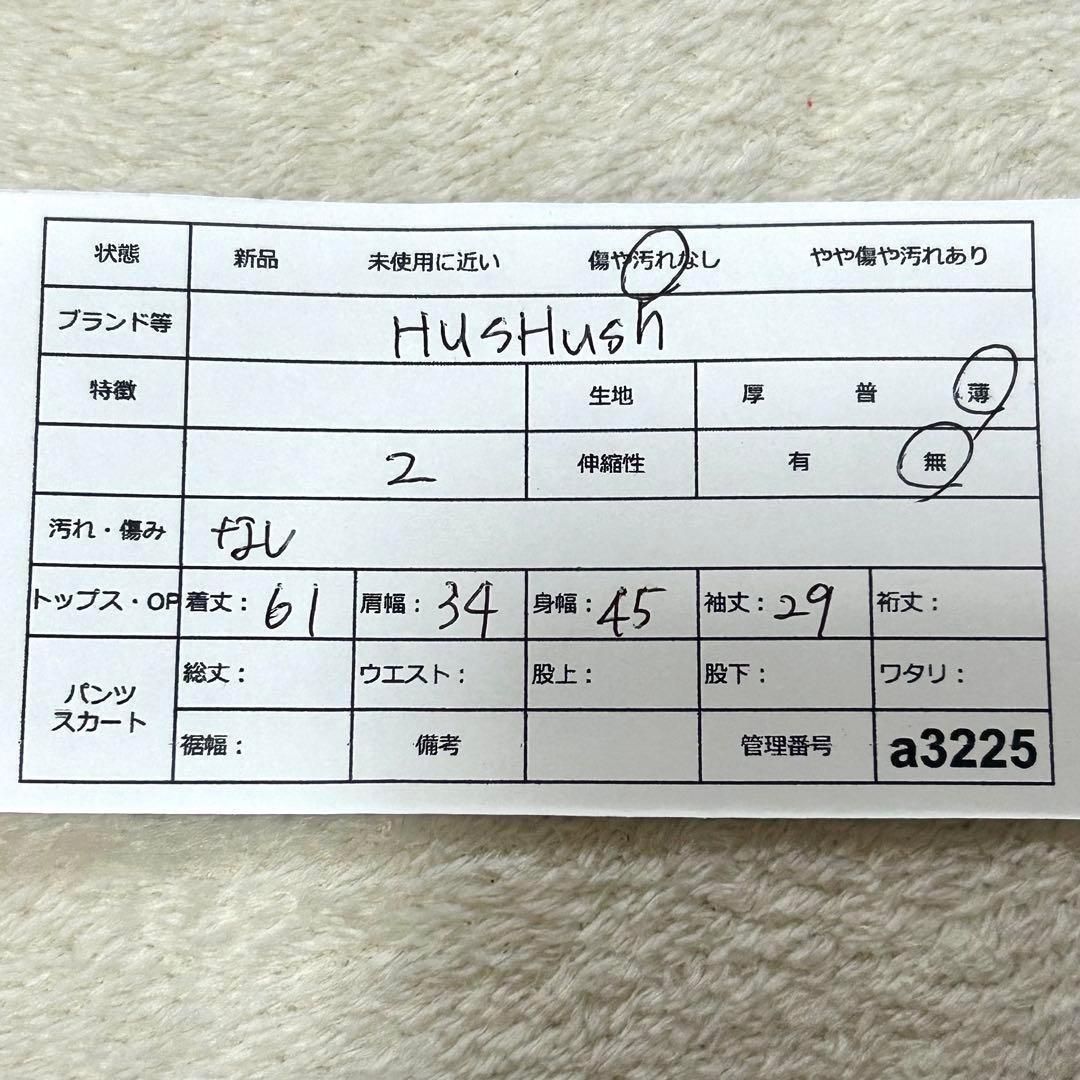 状態 新品 未使用に近い 傷や汚れなし やや傷や汚れあり
ブランド等 HusHush
特徴 生地 厚 普 薄
2 伸縮性 有 無
汚れ・傷み なし
トップス・OP 着丈：61 肩幅：34 身幅：45 袖丈：29 裄丈：
パンツ スカート 総丈： ウエスト： 股上： 股下： ワタリ：
裾幅： 備考 管理番号 a3225